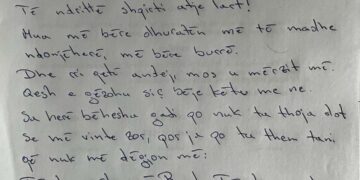 Të ndrittë shpirti atje lart!
Mua më bëre dhuratën më të madhe
ndonjëherë, më bëre burrë.
Dhe rri qetë andej, mos u mërzit më.
Qesh e gëzohu siç bëje këtu me ne.
Sa herë bëhesha gadi po nuk ta thoja dot
Se më vinte zor, por ja po ta them tani
që nuk më dëgjon më: